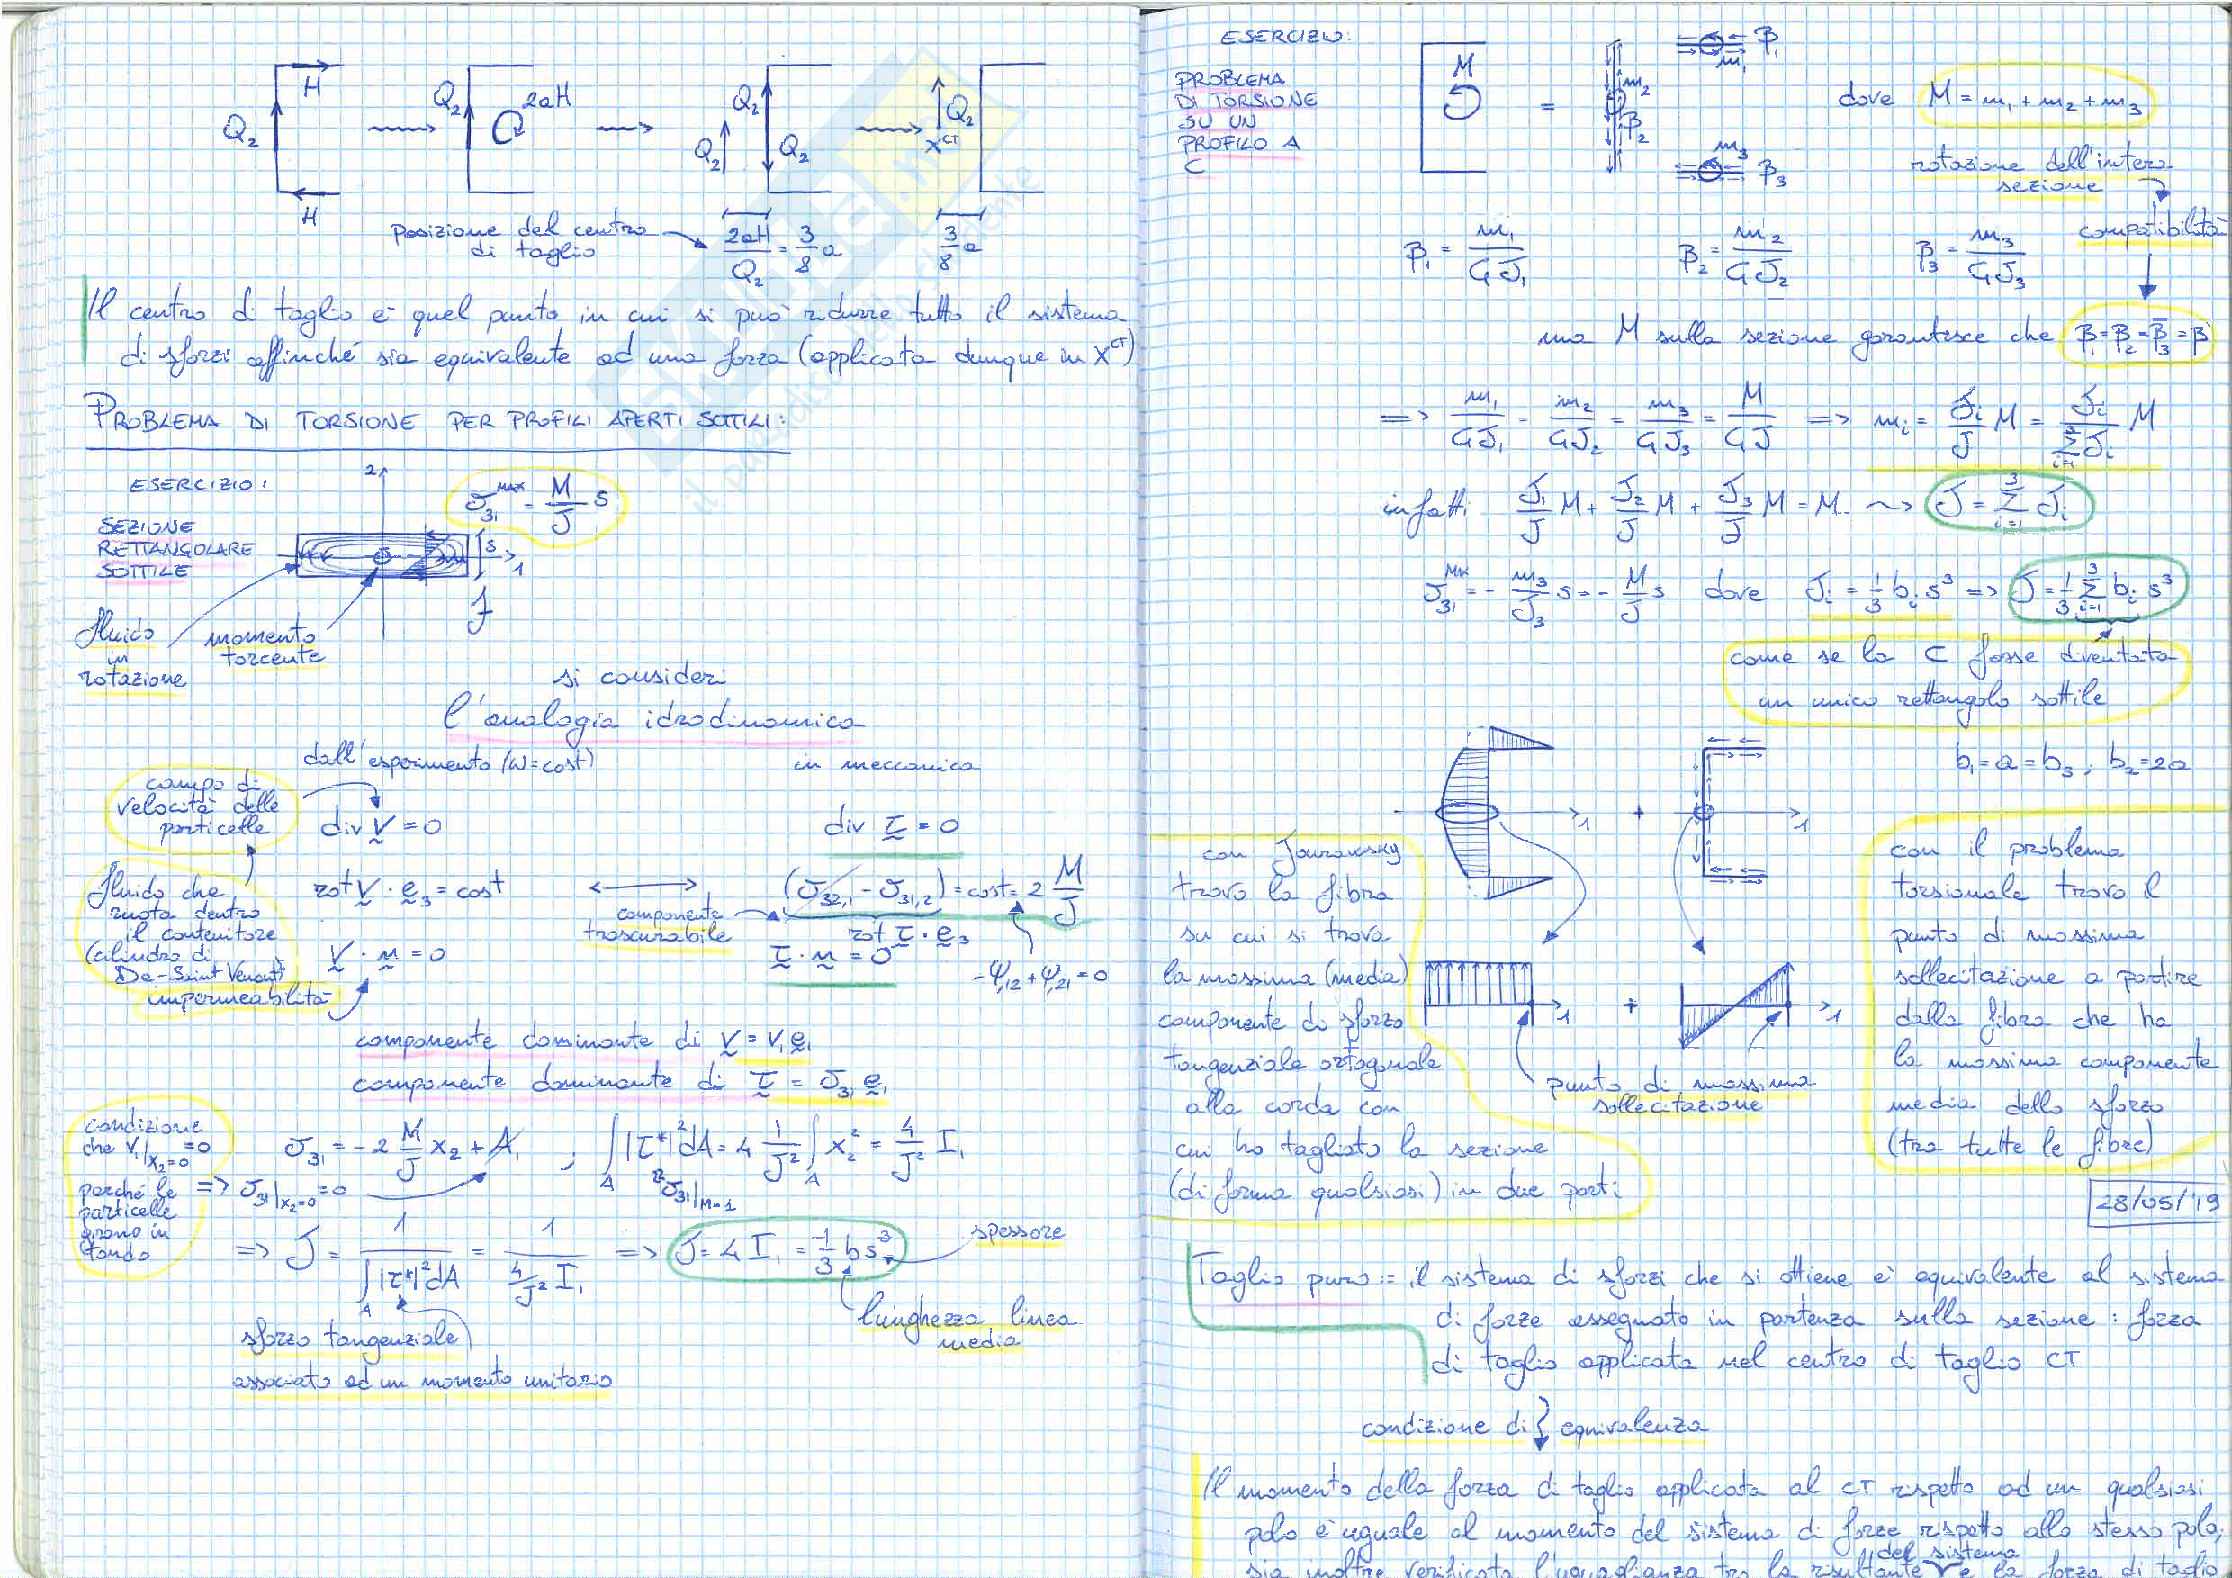 H
Q₂
H
Q₂
2aH
Q₂
Q₂
Q₂
Q₂
X^CT
posizione del centro
di taglio
2aH/Q₂ = 3/8 a
3/8 a
Il centro di taglio è quel punto in cui si può ridurre tutto il sistema
di sforzi affinché sia equivalente ad una forza (applicata dunque in X^CT)
PROBLEMA DI TORSIONE PER PROFILI APERTI SOTTILI:
ESERCIZIO:
SEZIONE
RETTANGOLARE
SOTTILE
2
σ₃₁^MAX = M/J s
s
1
fluido
in
rotazione
momento
torcente
si consideri
l'analogia idrodinamica
dall'esperimento (ω=cost)
in meccanica
campo di
velocità delle
particelle
div v = 0
div τ = 0
fluido che
ruota dentro
il contenitore
(cilindro di
De-Saint Venant)
impermeabilità
rot v · e₃ = cost
(σ₃₂,₁ - σ₃₁,₂) = cost = 2 M/J
componente
trascurabile
rot τ · e₃
v · n = 0
τ · n = 0
-ψ,₁₂ + ψ,₂₁ = 0
componente dominante di v = v₁e₁
componente dominante di τ = σ₃₁e₁
condizione
che v₁|x₂=0 = 0
perché le
particelle
girano in
tondo
σ₃₁ = -2 M/J x₂ + A₁ ; ∫_A |τ*|²dA = 4 1/J² ∫_A x₂² = 4/J² I₁
=> σ₃₁|x₂=0 = 0
σ₃₁|M=1
=> J = 1/∫_A |τ*|²dA = 1/(4/J² I₁) => J = 4 I₁ = 1/3 b s³
spessore
lunghezza linea
media
sforzo tangenziale
associato ad un momento unitario
ESERCIZIO:
PROBLEMA
DI TORSIONE
SU UN
PROFILO A
C
M
=
m₂
β₂
β₁
m₁
m₃
β₃
dove M = m₁ + m₂ + m₃
rotazione dell'intera
sezione
compatibilità
β₁ = m₁/GJ₁
β₂ = m₂/GJ₂
β₃ = m₃/GJ₃
una M sulla sezione garantisce che β₁=β₂=β₃=β
=> m₁/GJ₁ = m₂/GJ₂ = m₃/GJ₃ = M/GJ => mᵢ = Jᵢ/J M = Jᵢ/∑ᵢ₌₁³Jᵢ M
infatti J₁/J M + J₂/J M + J₃/J M = M ⇝ J = ∑ᵢ₌₁³ Jᵢ
σ₃₁^MAX = - m₃/J₃ s = - M/J s dove Jᵢ = 1/3 bᵢ s³ => J = 1/3 ∑ᵢ₌₁³ bᵢ s³
come se la C fosse diventata
un unico rettangolo sottile
b₁ = a = b₃ ; b₂ = 2a
1
+
1
con Jourawsky
trovo la fibra
su cui si trova
la massima (media)
componente di sforzo
tangenziale ortogonale
alla corda con
cui ho tagliato la sezione
(di forma qualsiasi) in due parti
1
+
1
punto di massima
sollecitazione
con il problema
torsionale trovo il
punto di massima
sollecitazione a partire
dalla fibra che ha
la massima componente
media dello sforzo
(tra tutte le fibre)
28/05/'19
Taglio puro := il sistema di sforzi che si ottiene è equivalente al sistema
di forze assegnato in partenza sulla sezione : forza
di taglio applicata nel centro di taglio CT
condizione di equivalenza
Il momento della forza di taglio applicata al CT rispetto ad un qualsiasi
polo è uguale al momento del sistema di forze rispetto allo stesso polo;
del sistema
sia inoltre verificata l'uguaglianza tra la risultante e la forza di taglio